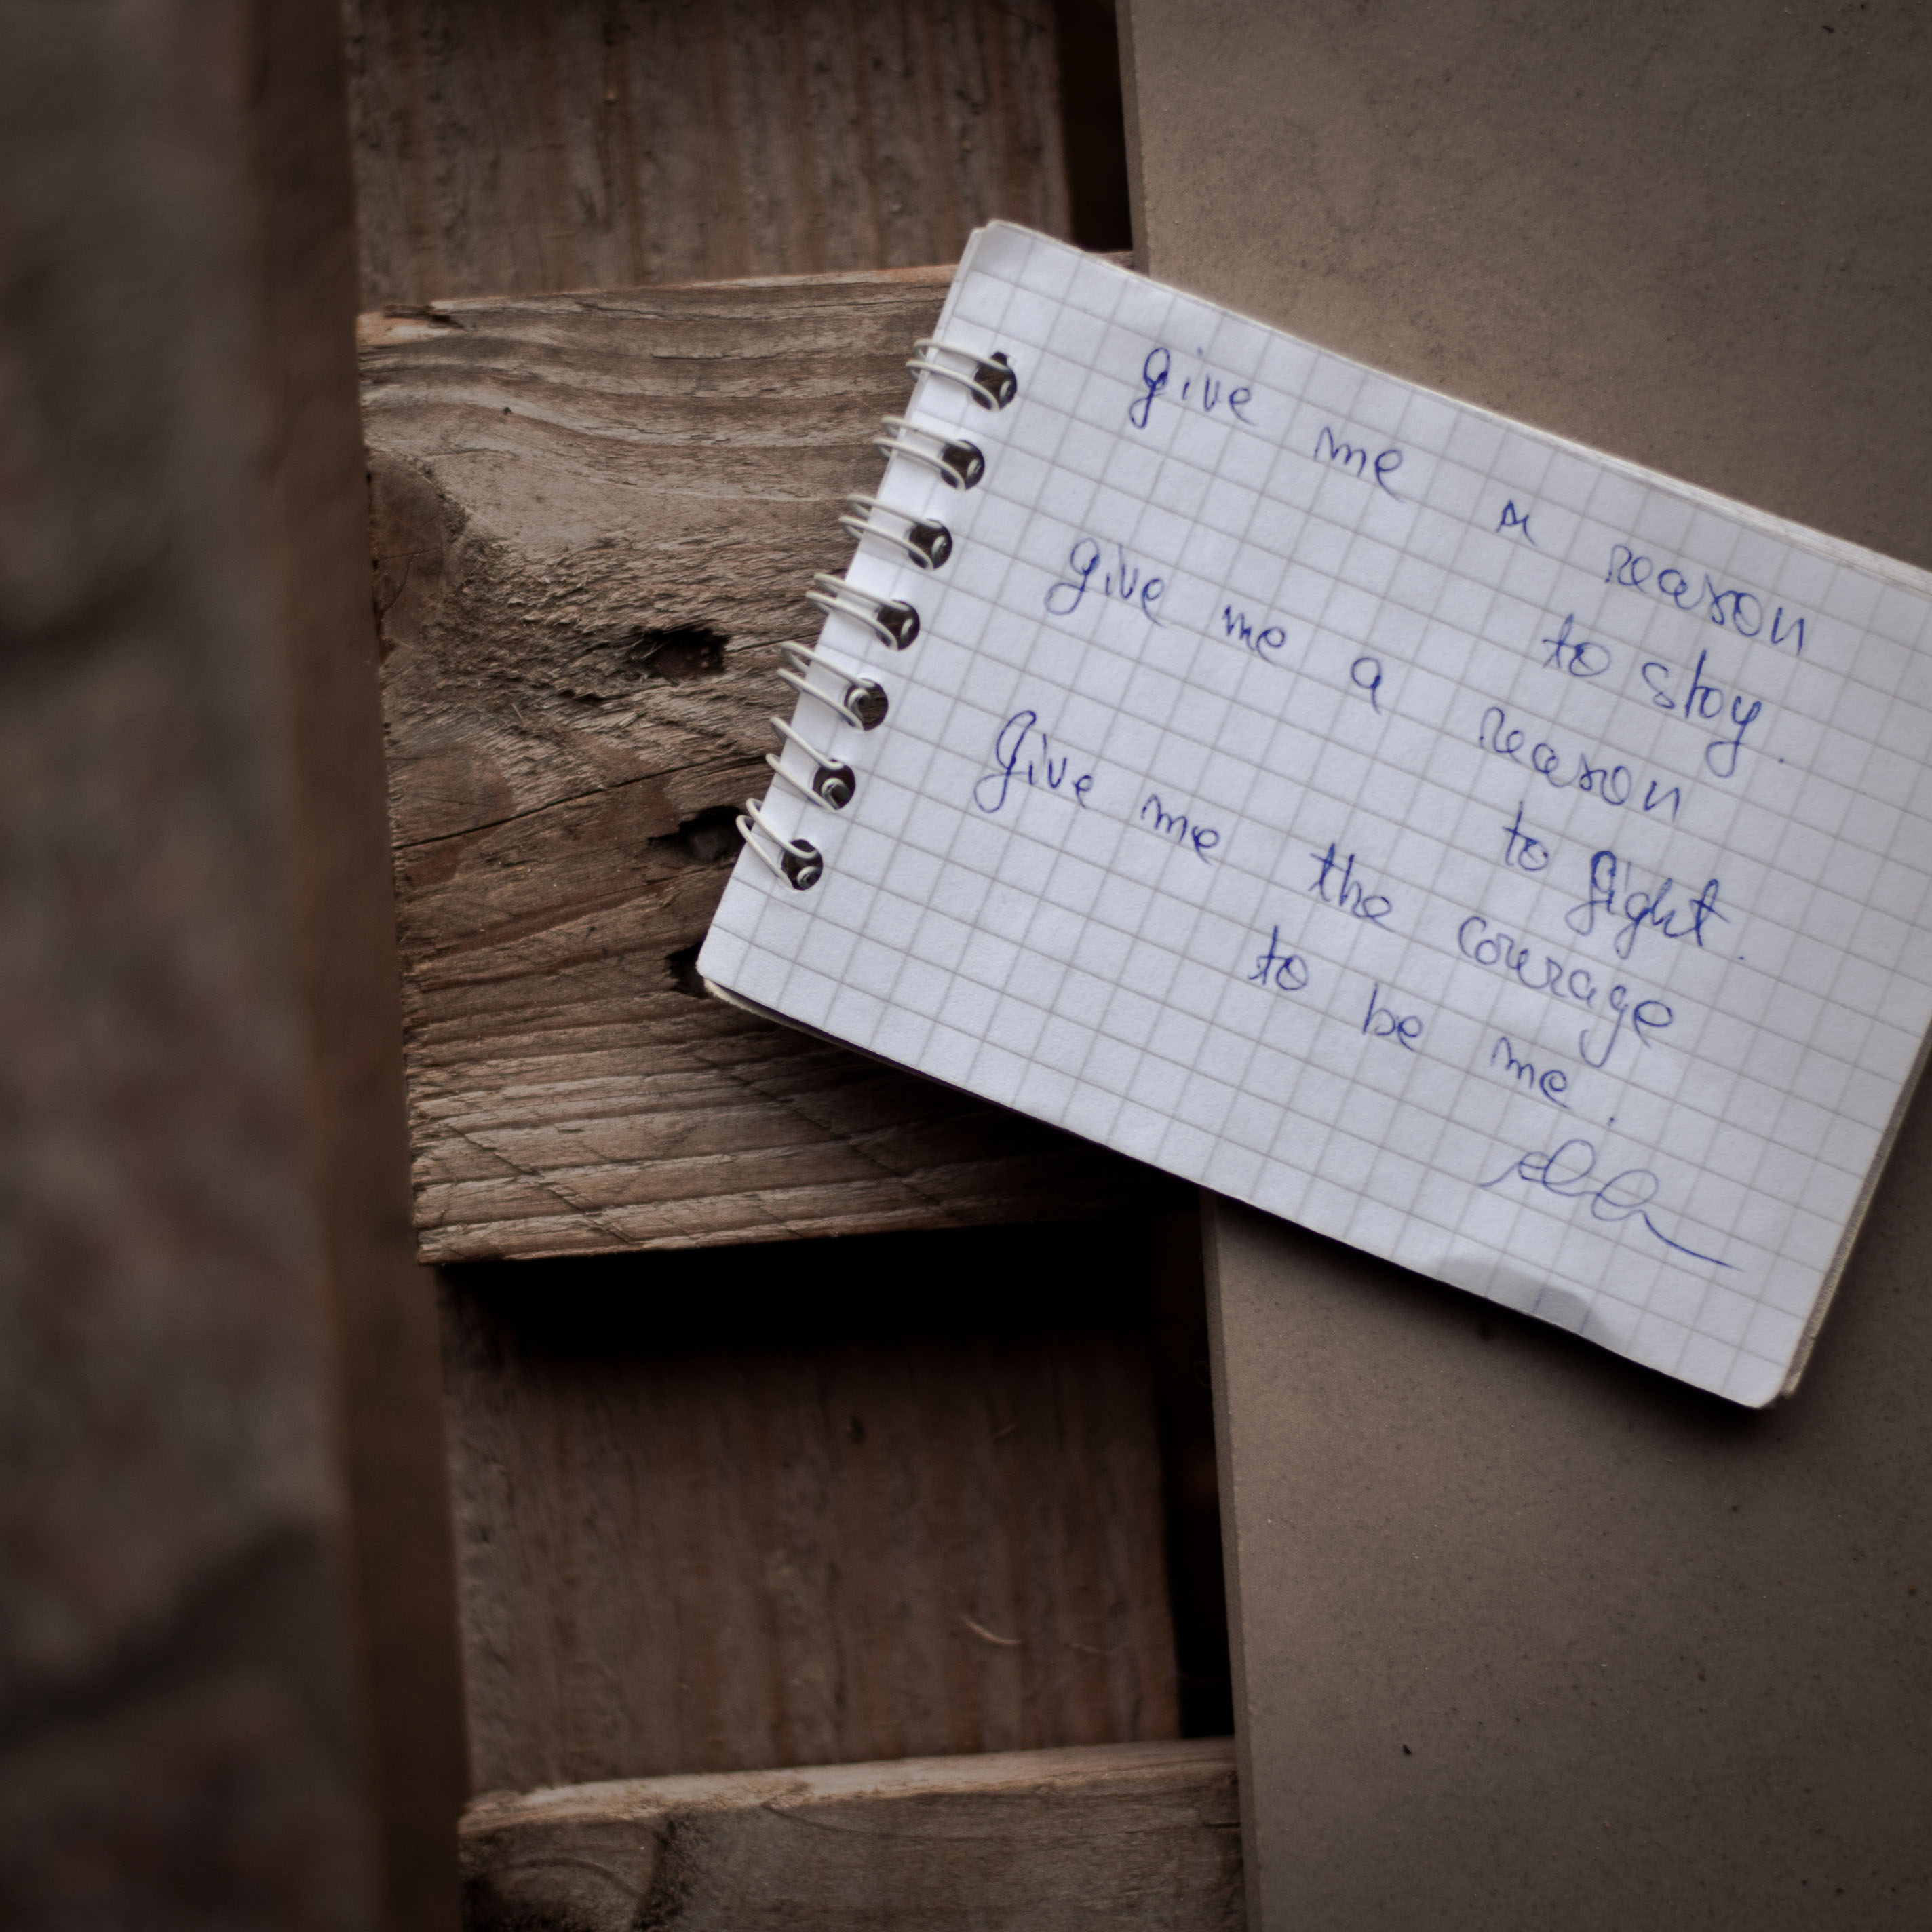 give me a reason
to stay.
give me a reason
to fight.
Give me the courage
to be me.